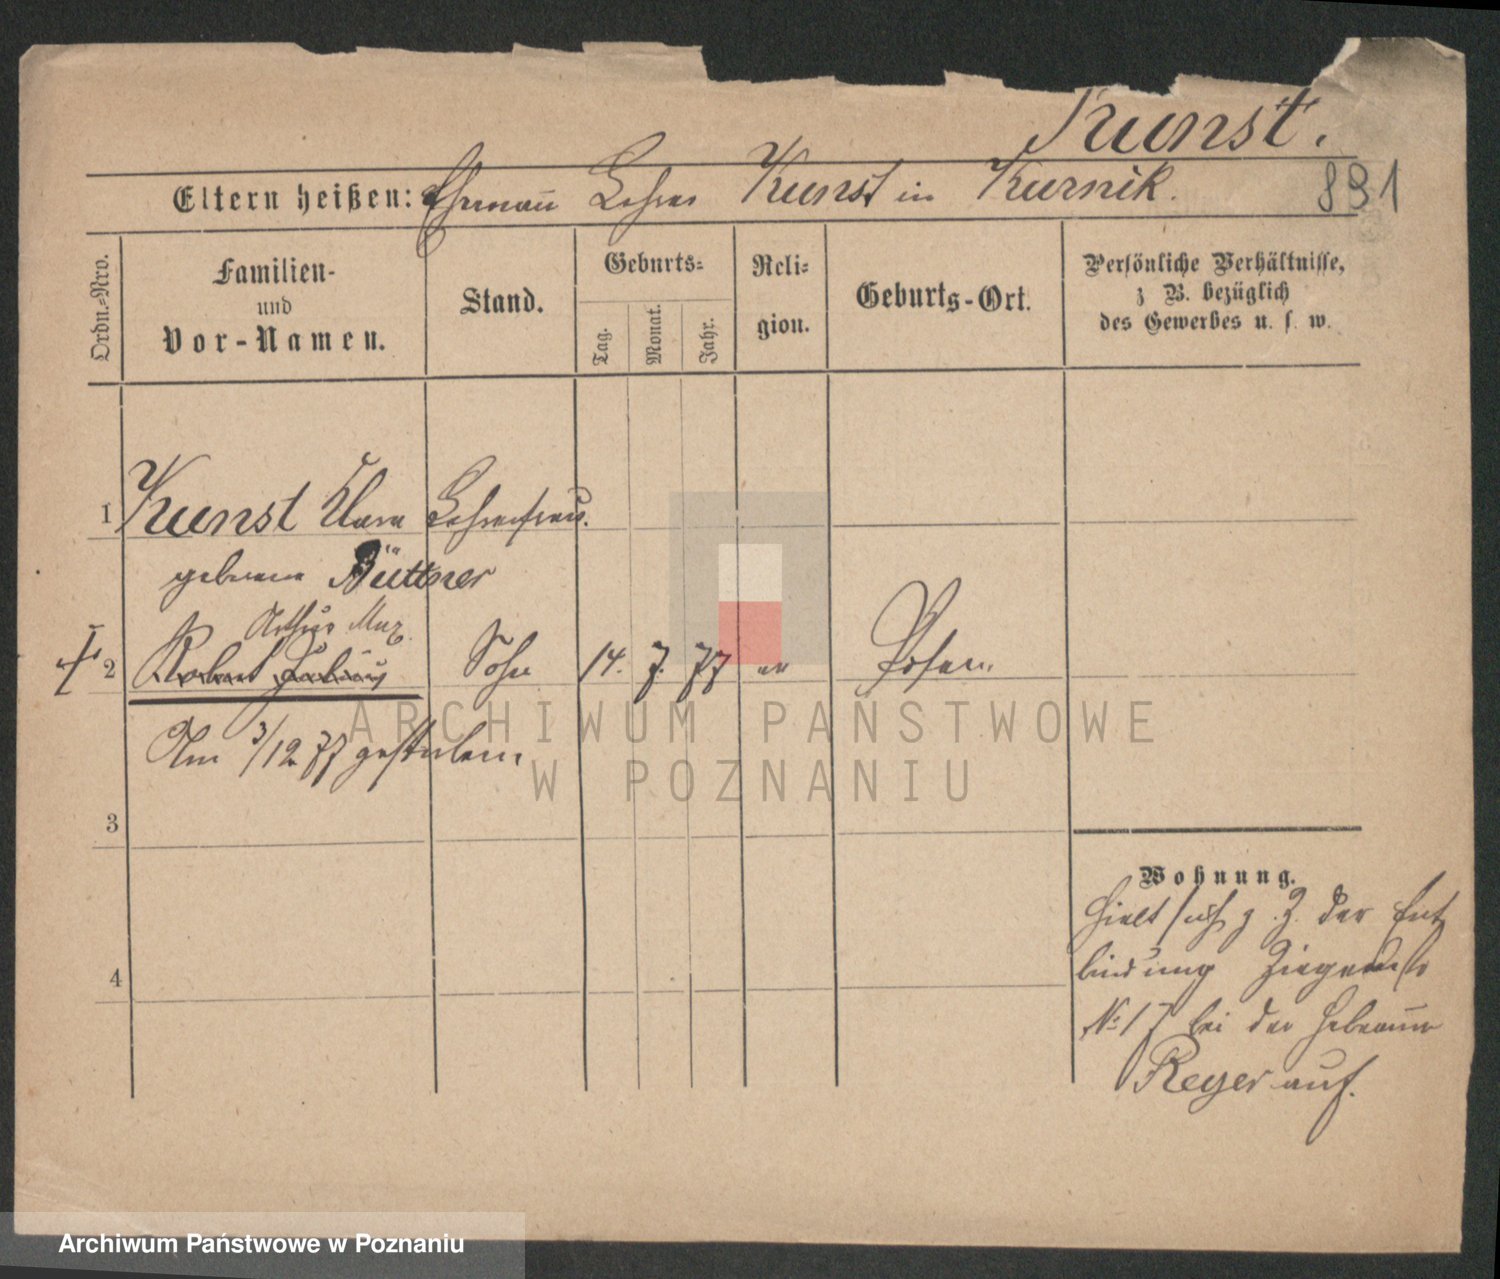 Kunst.
Eltern heißen: Ehemann Lehrer Kunst in Kurnik. 891
Ordn.-Nro.
Familien-
und
Vor-Namen.
Stand.
Geburts-
Tag.
Monat.
Jahr.
Reli-
gion.
Geburts-Ort.
Persönliche Verhältnisse,
z B. bezüglich
des Gewerbes u. s. w.
1 Kunst Clara Lehrerfrau.
geborene Büttner
Arthur Max
2 Robert Julius Sohn 14. 7. 77 ev Posen.
Am 3/12 77 gestorben.
3
4
Wohnung.
Hielt sich z. Z. der Ent
bindung
No 17 bei der Hebamme
Reyer auf.
ARCHIWUM PAŃSTWOWE
W POZNANIU
Archiwum Państwowe w Poznaniu